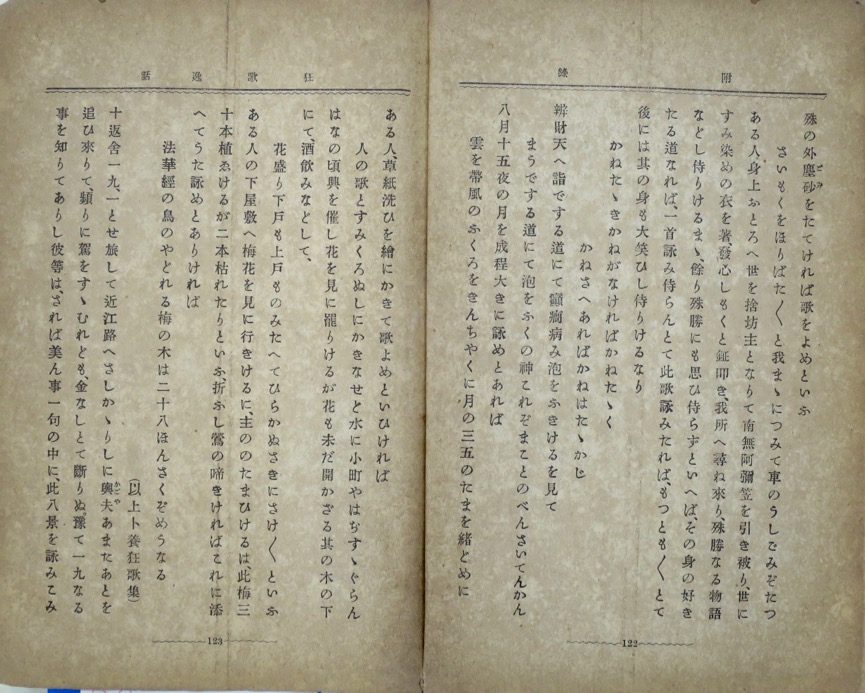 附錄
殊の外塵砂をたてければ歌をよめといふ
ごみ
さいもくをほりばた〱と我まゝにつみて車のうしごみぞたつ
ある人身上おとろへ世を捨坊主となりて南無阿彌笠を引き被り、世に
すみ染めの衣を著、發心しもくと鉦叩き、我所へ尋ね來り、殊勝なる物語
などし侍りけるまゝ、餘り殊勝にも思ひ侍らずといへば、その身の好き
たる道なれば、一首詠み侍らんとて此歌詠みたれば、もつとも〱とて
後には其の身も大笑ひし侍りけるなり
かねたゝきかねがなければかねたゝく
かねさへあればかねはたゝかじ
辨財天へ詣でする道にて癲癇病み泡をふきけるを見て
まうでする道にて泡をふくの神これぞまことのべんさいてんかん
八月十五夜の月を成程大きに詠めとあれば
雲を帶風のふくろをきんちやくに月の三五のたまを緒どめに
122
狂歌逸話
ある人、草紙洗ひを繪にかきて歌よめといひければ
人の歌とすみくろぬしにかきなせど水に小町やはぢすゝぐらん
はなの頃興を催し花を見に罷りけるが花も未だ開かざる其の木の下
にて、酒飮みなどして、
花盛り下戸も上戸ものみたへてひらかぬさきにさけ〱といふ
ある人の下屋敷へ梅花を見に行きけるに、主ののたまひけるは、此梅三
十本植ゑけるが二本枯れたりといふ、折ふし鶯の啼きければこれに添
へてうた詠めとありければ
法華經の鳥のやどれる梅の木は二十八ほんさくぞめうなる
(以上卜養狂歌集)
十返舍一九、一とせ旅して近江路へさしかゝりしに輿夫あまたあとを
かごや
追ひ來りて、頻りに駕をすゝむれども、金なしとて斷りぬ、豫て一九なる
事を知りてありし彼等は、されば美ん事一句の中に、此八景を詠みこみ
123